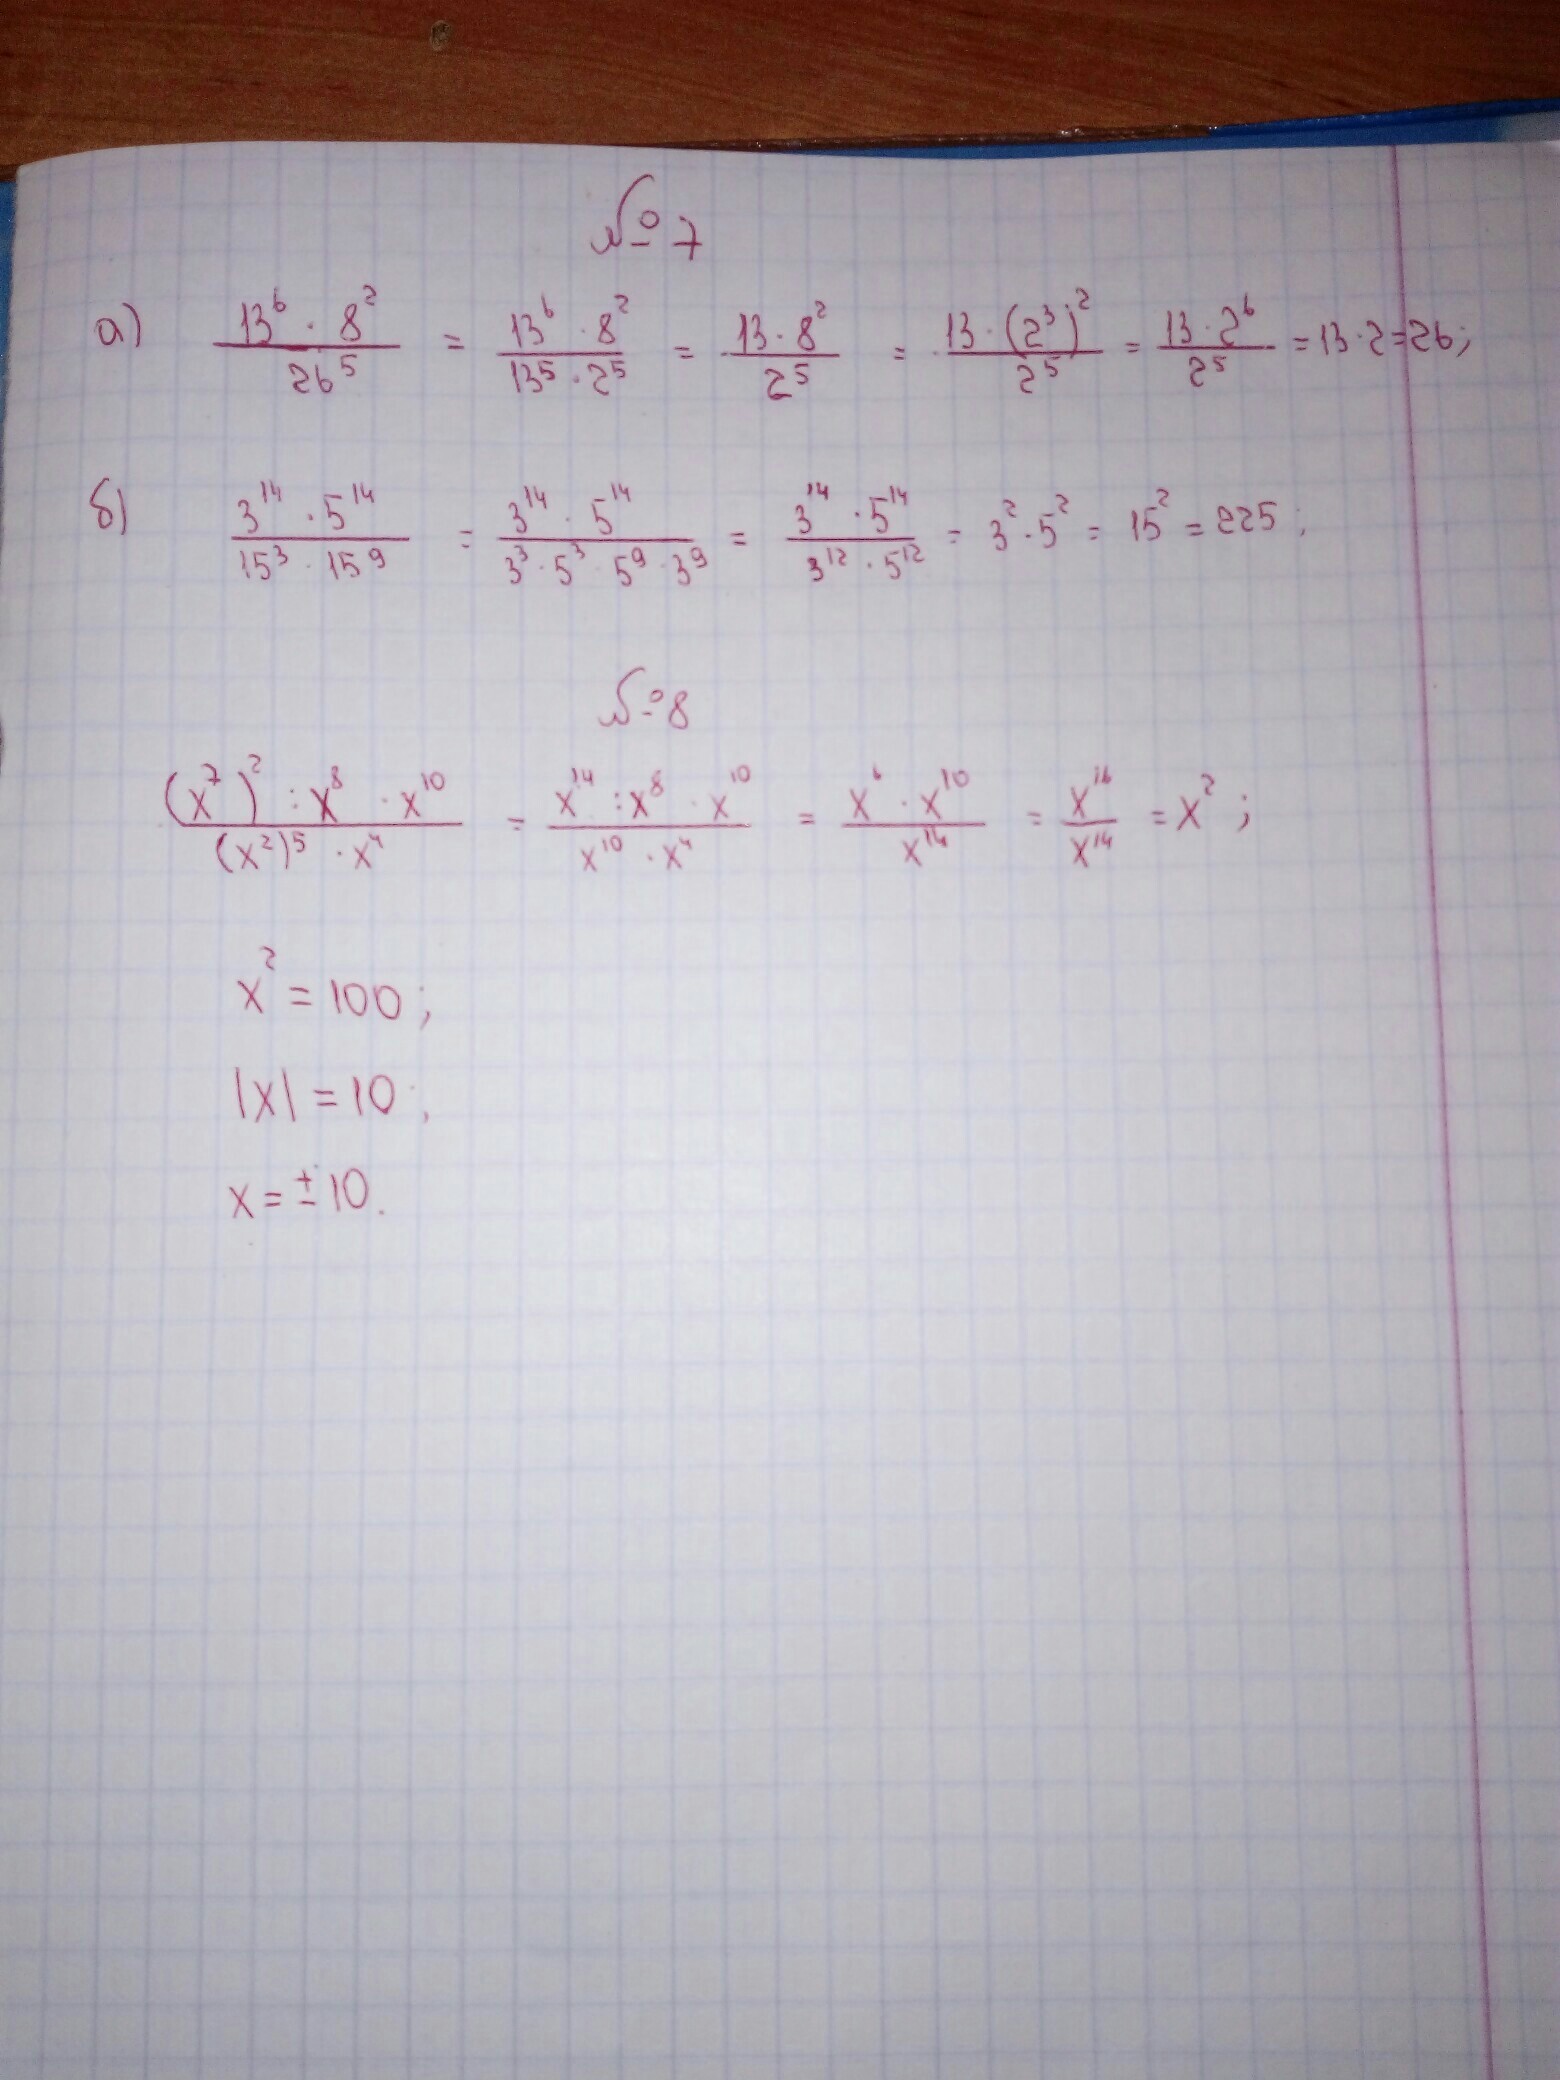 № 7
а) 13⁶ · 8² / 26⁵ = 13⁶ · 8² / 13⁵ · 2⁵ = 13 · 8² / 2⁵ = 13 · (2³)² / 2⁵ = 13 · 2⁶ / 2⁵ = 13 · 2 = 26;
б) 3¹⁴ · 5¹⁴ / 15³ · 15⁹ = 3¹⁴ · 5¹⁴ / 3³ · 5³ · 5⁹ · 3⁹ = 3¹⁴ · 5¹⁴ / 3¹² · 5¹² = 3² · 5² = 15² = 225;
№ 8
(x⁷)² : x⁸ · x¹⁰ / (x²)⁵ · x⁴ = x¹⁴ : x⁸ · x¹⁰ / x¹⁰ · x⁴ = x⁶ · x¹⁰ / x¹⁴ = x¹⁶ / x¹⁴ = x²;
x² = 100;
|x| = 10;
x = ± 10.